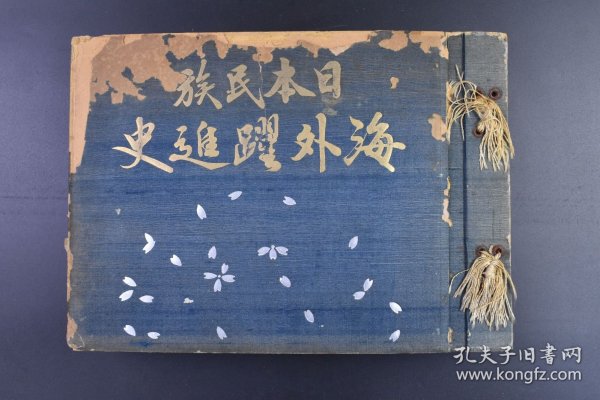 日本民族
海外躍進史
孔夫子旧书网
www.kongfz.com